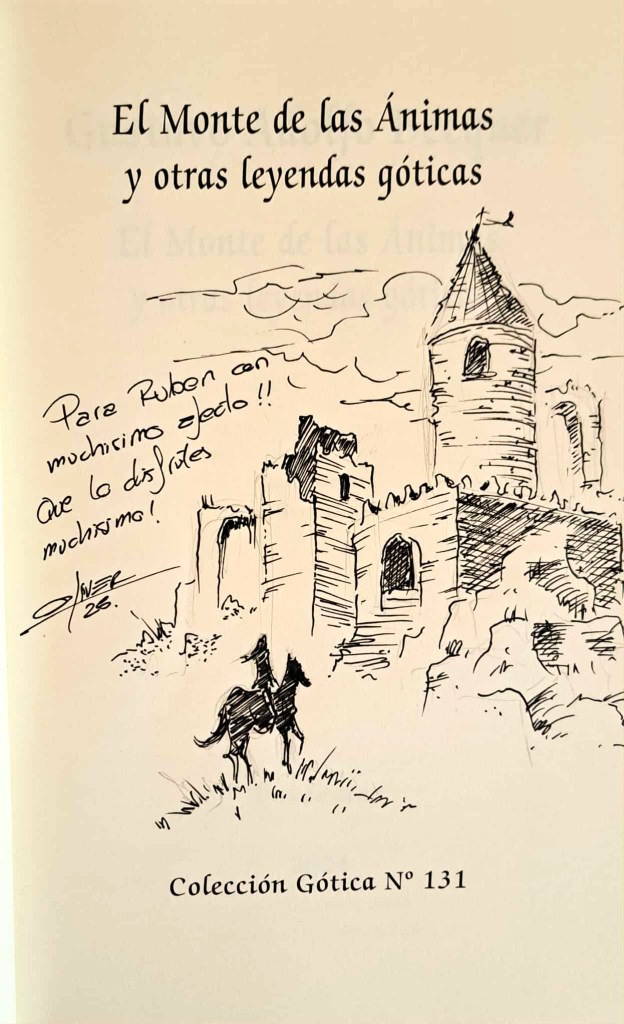 El Monte de las Ánimas
y otras leyendas góticas
Para Ruben con
muchisimo afecto!!
Que lo disfrutes
muchisimo!
OLIVER
26.
Colección Gótica Nº 131